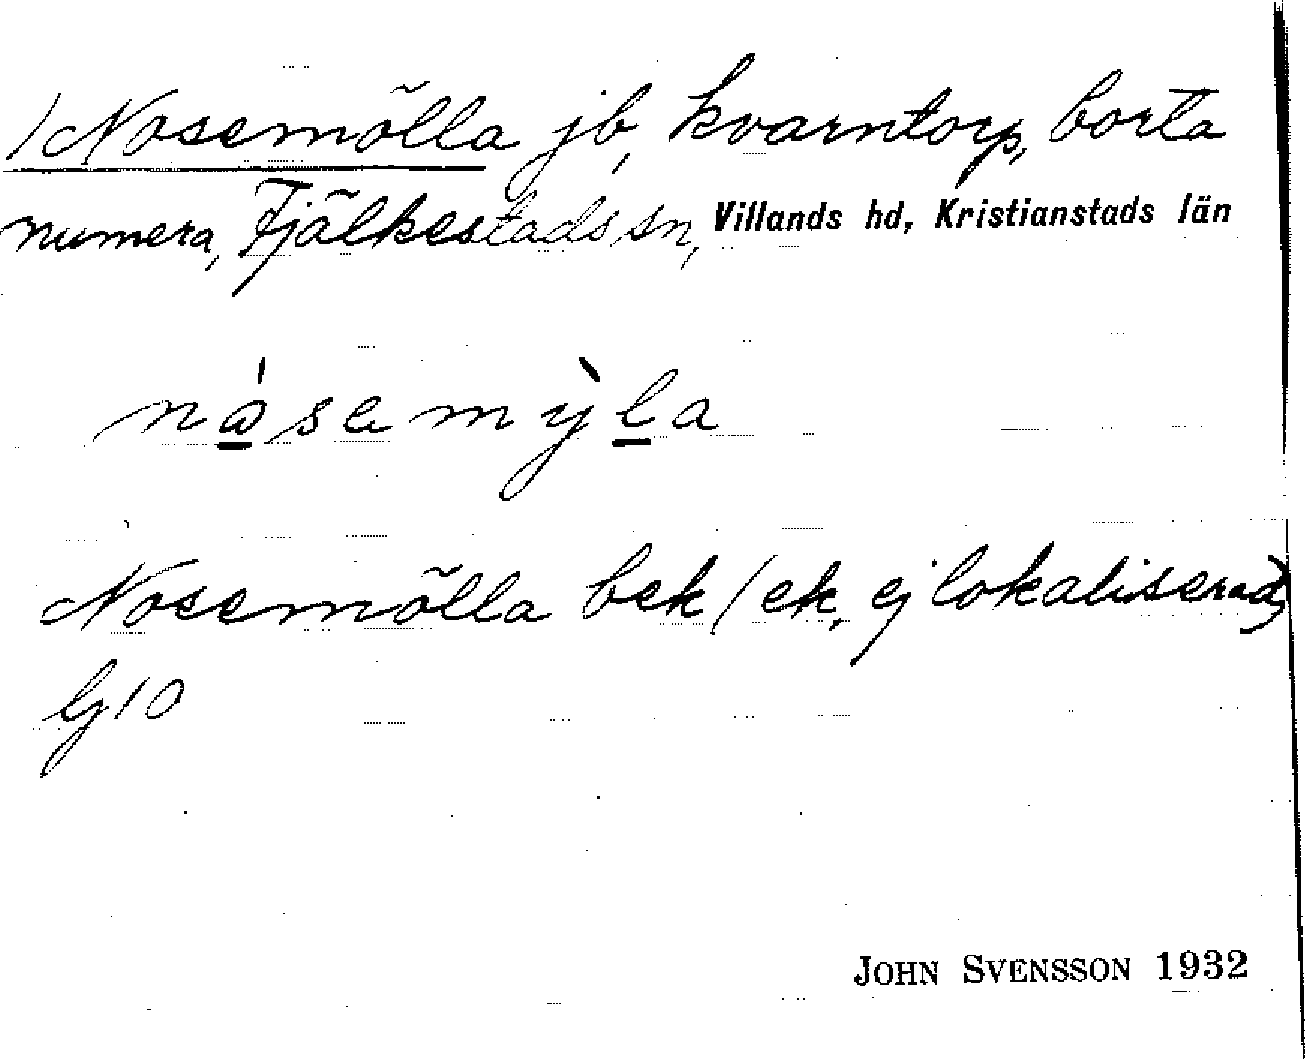 /Nosemölla jb, kvarntorp, borta
numera, Fjälkestads sn, Villands hd, Kristianstads län
nåsemỳla
Nosemölla bek (ek, ej lokaliserad)
lj 10
JOHN SVENSSON 1932